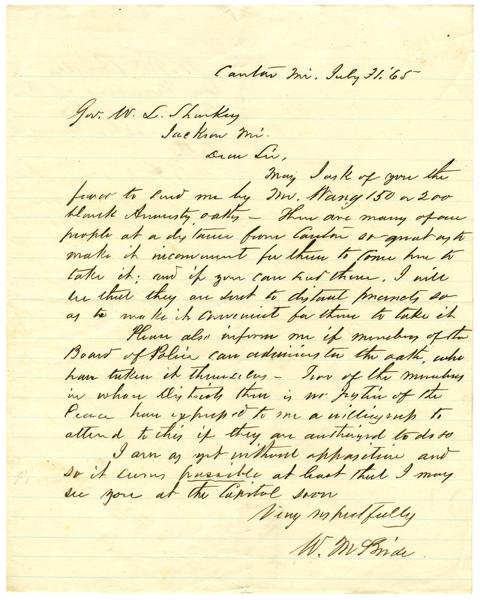 Canton Mi. July 31. '65
Gov. W. L. Sharkey
Jackson Mi.
Dear Sir,
May I ask of you the
favor to send me by Mr. Wang 150 or 200
blank Amnesty oaths — There are many of our
people at a distance from Canton so great as to
make it inconvenient for them to come here to
take it; and if you can send them, I will
see that they are sent to distant precincts so
as to make it convenient for them to take it
Please also inform me if members of the
Board of Police can administer the oath, who
have taken it themselves — Two of the members
in whose Districts there is no Justice of the
Peace have expressed to me a willingness to
attend to this if they are authorized to do so
I am as yet without opposition and
so it seems possible at least that I may
see you at the Capitol soon
Very respectfully
W. McBride